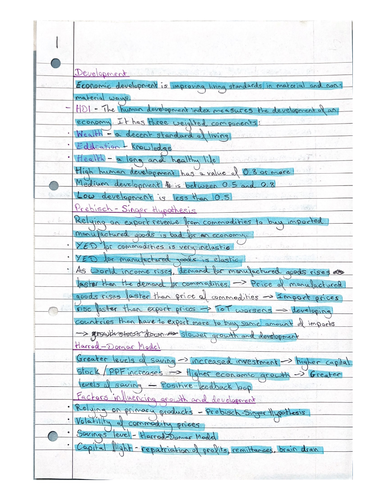 1
Development
Economic development is improving living standards in material and non
material ways
HDI - The human development index measures the development of an
economy. It has three weighted components:
Wealth - a decent standard of living
Education - Knowledge
Health - a long and healthy life
High human development has a value of 0.8 or more
Medium development is between 0.5 and 0.8
Low development is less than 0.5
Prebisch-Singer Hypothesis
Relying on export revenue from commodities to buy imported
manufactured goods is bad for an economy
YED for commodities is very inelastic
YED for manufactured goods is elastic
As world income rises, demand for manufactured goods rises
faster than the demand for commodities → Price of manufactured
goods rises faster than price of commodities → Import prices
rise faster than export prices → ToT worsens → developing
countries then have to export more to buy same amount of imports
→ growth slows down → slower growth and development
Harrod-Domar Model
Greater levels of saving → increased investment → higher capital
stock / PPF increases → Higher economic growth → Greater
levels of saving - Positive feedback loop
Factors influencing growth and development
Relying on primary products - Prebisch Singer Hypothesis
Volatility of commodity prices
Savings level - Harrod-Domar Model
Capital flight - repatriation of profits, remittances, brain drain